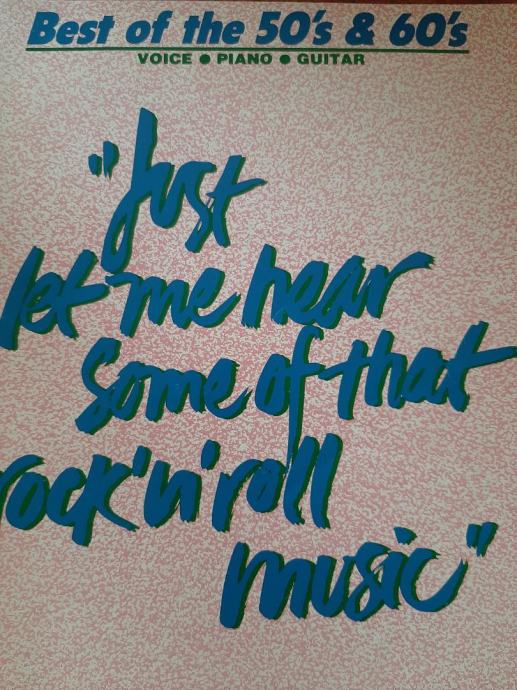 Best of the 50's & 60's
VOICE ● PIANO ● GUITAR
"Just
let me hear
some of that
rock'n'roll
music"